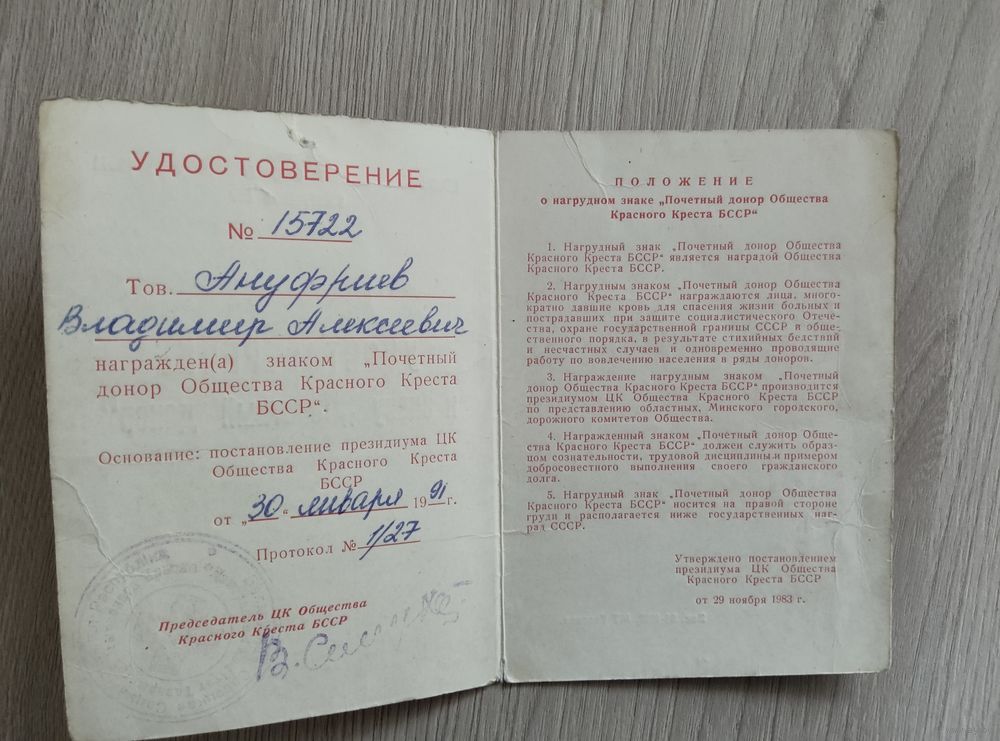 УДОСТОВЕРЕНИЕ
№ 15722
Тов. Ануфриев
Владимир Алексеевич
награжден(а) знаком „Почетный
донор Общества Красного Креста
БССР“.
Основание: постановление президиума ЦК
Общества Красного Креста
БССР
от „30“ января 1991 г.
Протокол № 1/27
Председатель ЦК Общества
Красного Креста БССР
ПОЛОЖЕНИЕ
о нагрудном знаке „Почетный донор Общества
Красного Креста БССР“
1. Нагрудный знак „Почетный донор Общества
Красного Креста БССР“ является наградой Общества
Красного Креста БССР.
2. Нагрудным знаком „Почетный донор Общества
Красного Креста БССР“ награждаются лица, много-
кратно давшие кровь для спасения жизни больных и
пострадавших при защите социалистического Отече-
ства, охране государственной границы СССР и обще-
ственного порядка, в результате стихийных бедствий
и несчастных случаев и одновременно проводящие
работу по вовлечению населения в ряды доноров.
3. Награждение нагрудным знаком „Почетный
донор Общества Красного Креста БССР“ производится
президиумом ЦК Общества Красного Креста БССР
по представлению областных, Минского городского,
дорожного комитетов Общества.
4. Награжденный знаком „Почетный донор Обще-
ства Красного Креста БССР“ должен служить образ-
цом сознательности, трудовой дисциплины и примером
добросовестного выполнения своего гражданского
долга.
5. Нагрудный знак „Почетный донор Общества
Красного Креста БССР“ носится на правой стороне
груди и располагается ниже государственных наг-
рад СССР.
Утверждено постановлением
президиума ЦК Общества
Красного Креста БССР
от 29 ноября 1983 г.